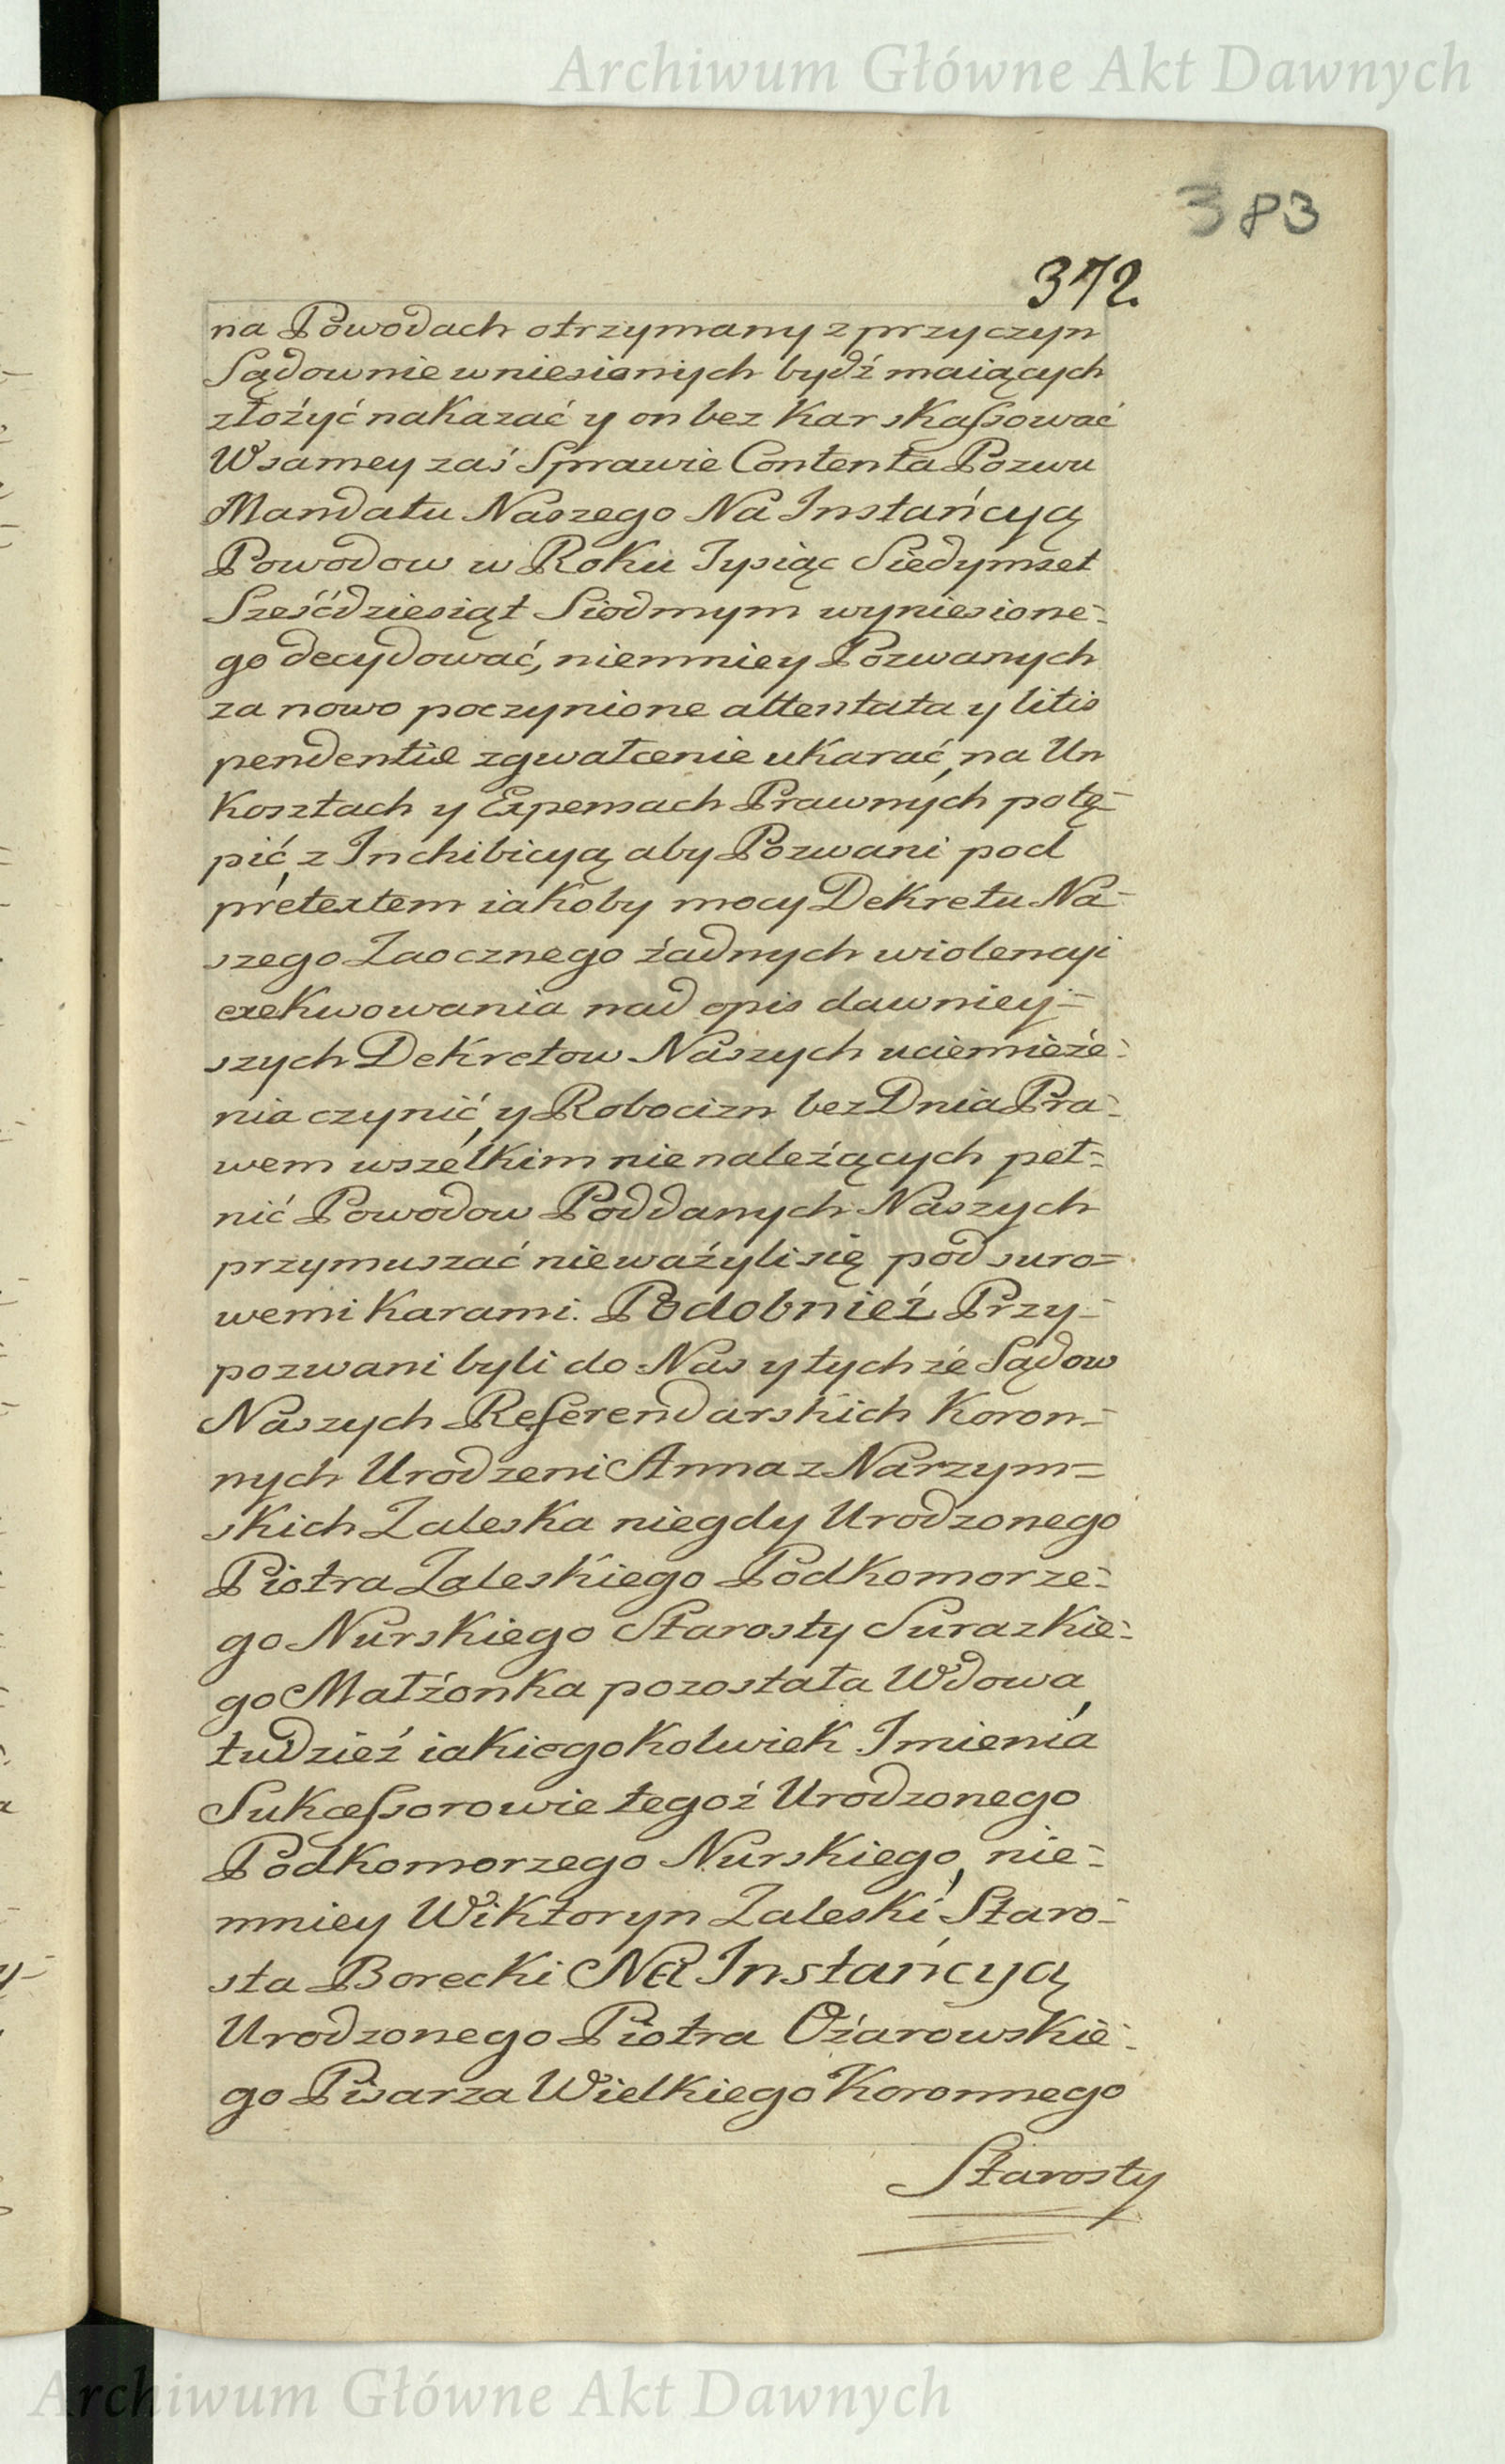 Archiwum Główne Akt Dawnych
383
372.
na Powodach otrzymany z przyczyn
Sądownie wniesionych bydź maiących
złożyć nakazać y on bez kar skassować
W samey zaś Sprawie Contenta Pozwu
Mandatu Naszego Na Instańcyą
Powodow w Roku Tysiąc Siedymset
Sześćdziesiąt Siodmym wyniesione=
go decydować, niemniey Pozwanych
za nowo poczynione attentata y litis
pendentiæ zgwałcenie ukarać, na Un
Kosztach y Expensach Prawnych potę=
pić, z Inchibicyą aby Pozwani pod
pretextem iakoby mocy Dekretu Na=
szego Zaocznego żadnych wiolencyi
exekwowania nad opis dawniey=
szych Dekretow Naszych uciemięże=
nia czynić, y Robocizn bez Dnia Pra=
wem wszelkim nienależących peł=
nić Powodow Poddanych Naszych
przymuszać nieważyli się pod suro=
wemi Karami. Podobnież Przy=
pozwani byli do Nas y tychże Sądow
Naszych Referendarskich Koron=
nych Urodzeni Anna z Narzym=
skich Zaleska niegdy Urodzonego
Piotra Zaleskiego Podkomorze=
go Nurskiego Starosty Surazkie=
go Małżonka pozostała Wdowa,
tudzież iakiegokolwiek Imienia
Sukcessorowie tegoż Urodzonego
Podkomorzego Nurskiego, nie=
mniey Wiktoryn Zaleski Staro=
sta Borecki Na Instańcyą
Urodzonego Piotra Ożarowskie=
go Pisarza Wielkiego Koronnego
Starosty
Archiwum Główne Akt Dawnych